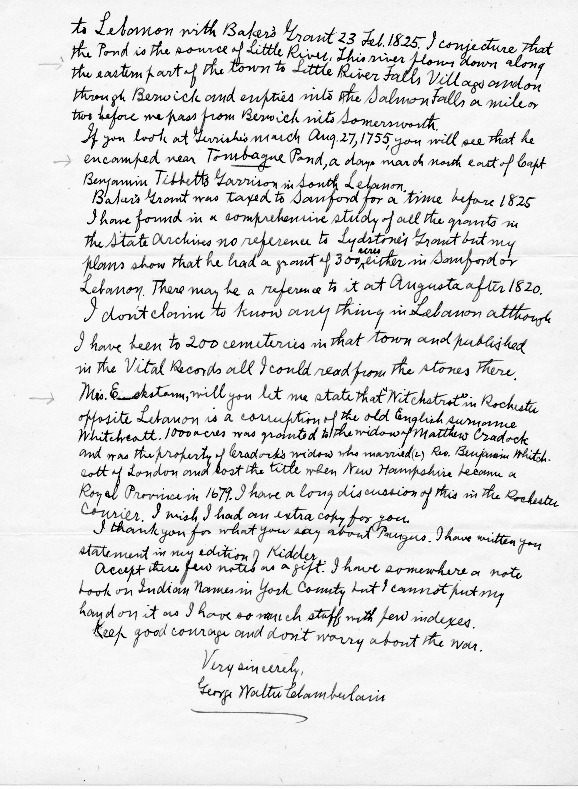 to Lebanon with Baker's Grant 23 Feb. 1825. I conjecture that
the Pond is the source of Little River. This river flows down along
the eastern part of the town to Little River Falls Village and on
through Berwick and empties into the Salmon Falls a mile or
two before we pass from Berwick into Somersworth.
If you look at Gerrishe's march Aug. 27, 1755, you will see that he
encamped near Tombague Pond, a days march north east of Capt
Benjamin Tibbetts Garrison in South Lebanon.
Baker's Grant was taxed to Sanford for a time before 1825
I have found in a comprehensive study of all the grants in
the State Archives no reference to Lydstone's Grant but my
plans show that he had a grant of 300 acres either in Sanford or
Lebanon. There may be a reference to it at Augusta after 1820.
I don't claim to know any thing in Lebanon although
I have been to 200 cemeteries in that town and published
in the Vital Records all I could read from the stones there.
Mrs. Eckstorm, will you let me state that "Witchstrot" in Rochester
opposite Lebanon is a corruption of the old English surname
Whitchcott. 1000 acres was granted to the widow of Matthew Cradock
and was the property of Cradock's widow who married (2) Rev. Benjamin Whitch-
cott of London and lost the title when New Hampshire became a
Royal Province in 1679. I have a long discussion of this in the Rochester
Courier. I wish I had an extra copy for you.
I thank you for what you say about Paugus. I have written you
statement in my edition of Kidder.
Accept these few notes as a gift. I have somewhere a note
book on Indian Names in York County but I cannot put my
hand on it as I have so much stuff with few indexes.
Keep good courage and don't worry about the war.
Very sincerely,
George Walter Chamberlain